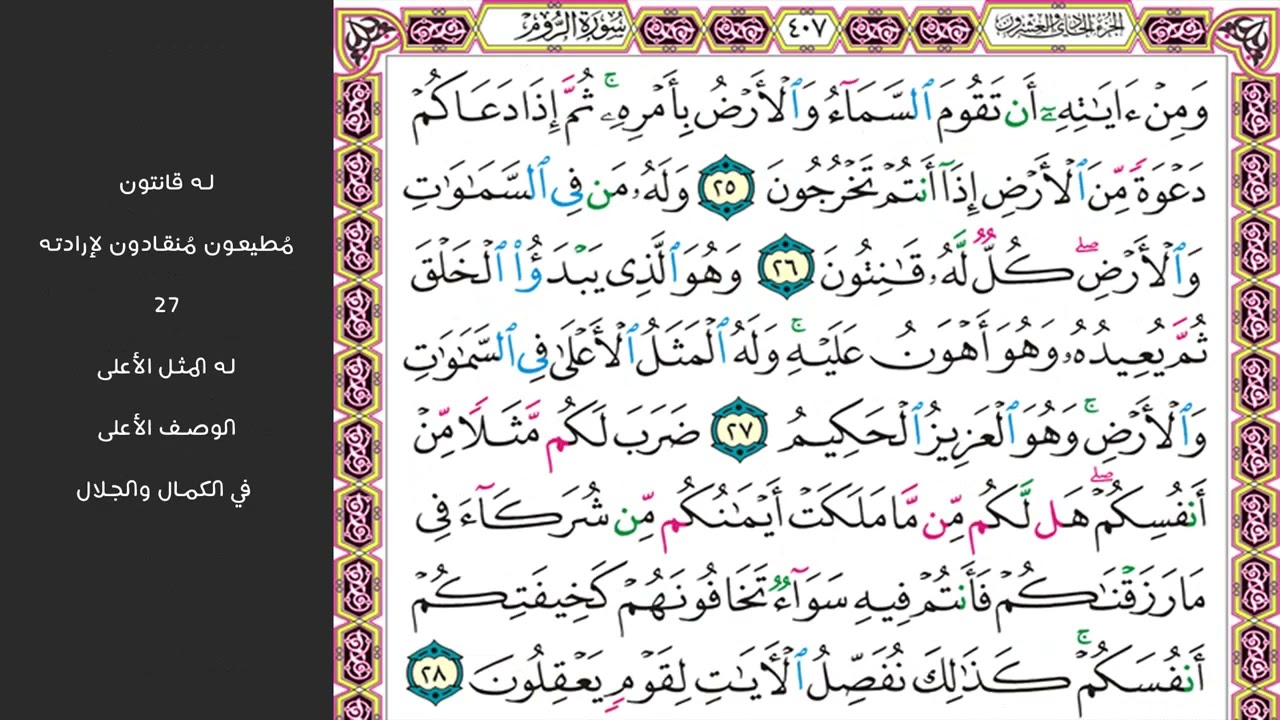 الجزء الحادي والعشرون
٤٠٧
سورة الروم
وَمِنْ ءَايَٰتِهِۦٓ أَن تَقُومَ ٱلسَّمَآءُ وَٱلْأَرْضُ بِأَمْرِهِۦ ۚ ثُمَّ إِذَا دَعَاكُمْ
دَعْوَةً مِّنَ ٱلْأَرْضِ إِذَآ أَنتُمْ تَخْرُجُونَ ٢٥ وَلَهُۥ مَن فِى ٱلسَّمَٰوَٰتِ
وَٱلْأَرْضِ ۖ كُلٌّ لَّهُۥ قَٰنِتُونَ ٢٦ وَهُوَ ٱلَّذِى يَبْدَؤُا۟ ٱلْخَلْقَ
ثُمَّ يُعِيدُهُۥ وَهُوَ أَهْوَنُ عَلَيْهِ ۚ وَلَهُ ٱلْمَثَلُ ٱلْأَعْلَىٰ فِى ٱلسَّمَٰوَٰتِ
وَٱلْأَرْضِ ۚ وَهُوَ ٱلْعَزِيزُ ٱلْحَكِيمُ ٢٧ ضَرَبَ لَكُم مَّثَلًا مِّنْ
أَنفُسِكُمْ ۖ هَل لَّكُم مِّن مَّا مَلَكَتْ أَيْمَٰنُكُم مِّن شُرَكَآءَ فِى
مَا رَزَقْنَٰكُمْ فَأَنتُمْ فِيهِ سَوَآءٌ تَخَافُونَهُمْ كَخِيفَتِكُمْ
أَنفُسَكُمْ ۚ كَذَٰلِكَ نُفَصِّلُ ٱلْءَايَٰتِ لِقَوْمٍ يَعْقِلُونَ ٢٨
له قانتون
مُطيعون مُنقادون لإرادته
27
له المثل الأعلى
الوصف الأعلى
في الكمال والجلال